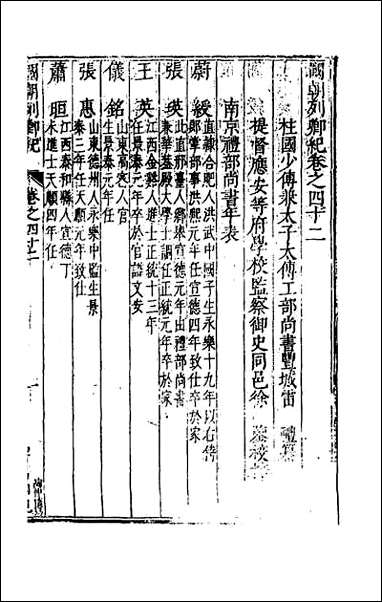 國朝列卿紀卷之四十二
柱國少傅兼太子太傅工部尚書豐城雷禮纂
提督應安等府學校監察御史同邑徐鑒校
南京禮部尚書年表
蔚綬 直隸合肥人洪武中國子生永樂十九年以右侍
郎掌部事洪熙元年任宣德四年致仕卒於家
張瑛 北直邢臺人鄉舉宣德元年由禮部尚書
兼華蓋殿大學士調任正統元年卒於家
王英 江西金谿人進士正統十三年
任景泰元年卒於官諡文安
儀銘 山東高密人官
生景泰元年任
張惠 山東德州人永樂中監生景
泰三年任天順元年致仕
蕭晅 江西泰和縣人宣德丁
未進士天順四年任
國朝列卿紀 卷之四十二 一